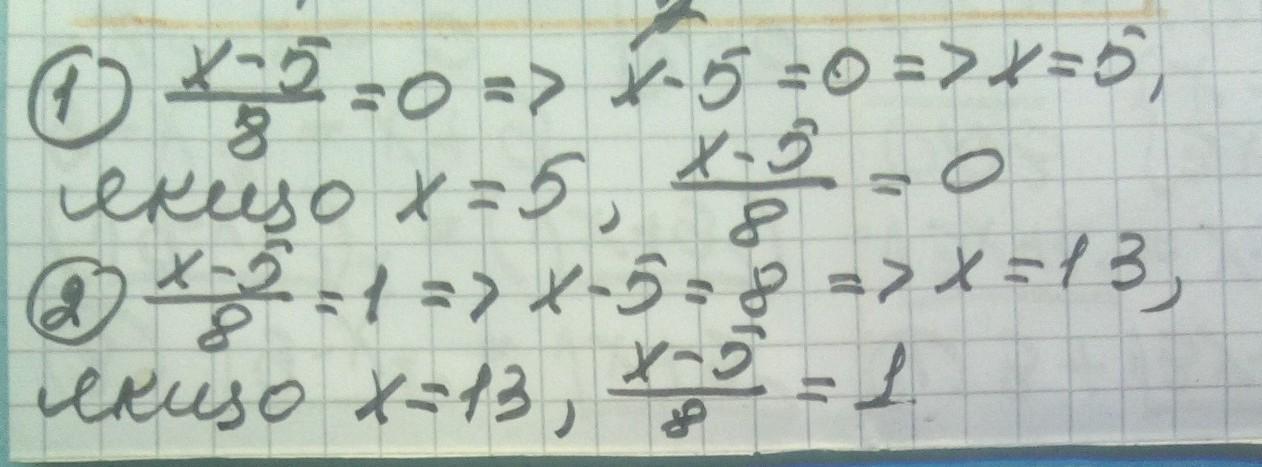 ① (x-5)/8 = 0 => x-5 = 0 => x = 5,
якщо x = 5, (x-5)/8 = 0
② (x-5)/8 = 1 => x-5 = 8 => x = 13,
якщо x = 13, (x-5)/8 = 1